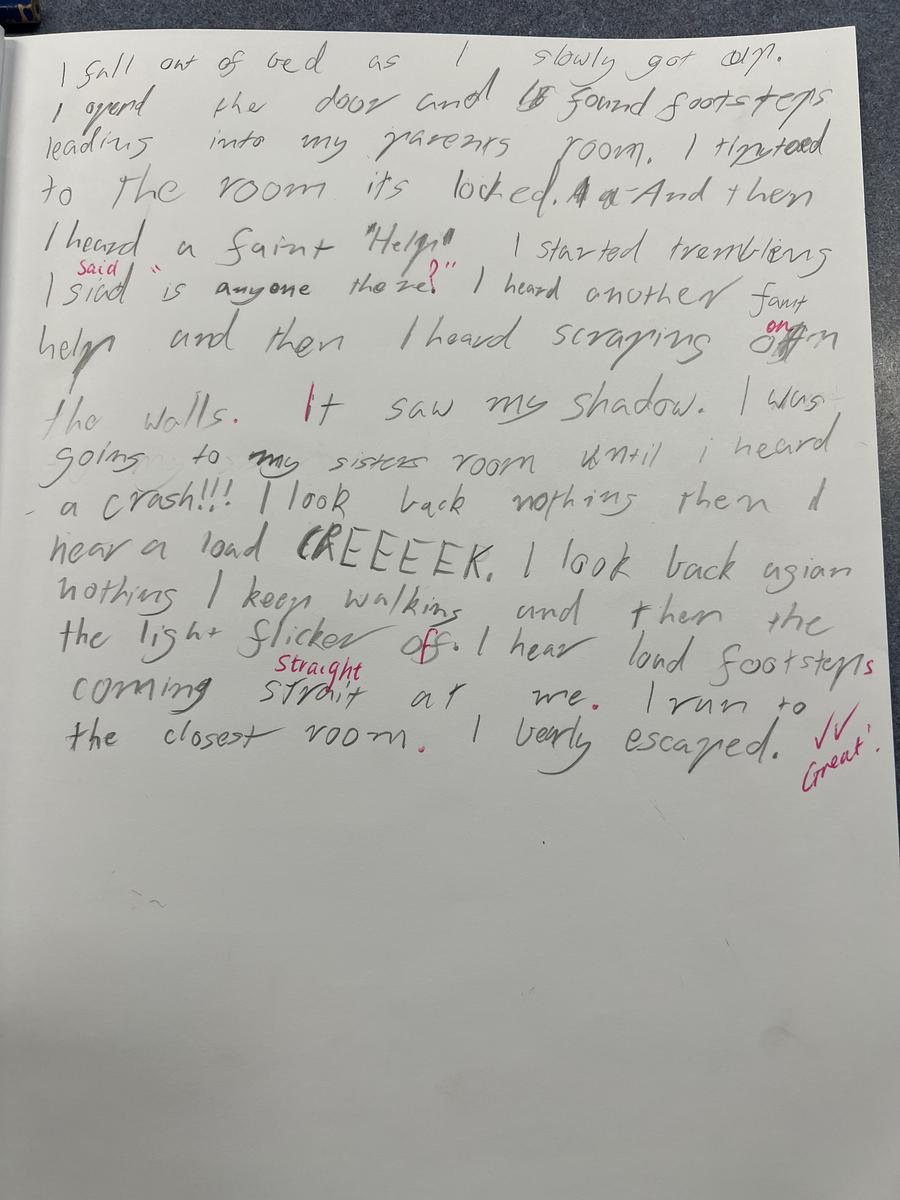 I fall out of bed as I slowly got up.
I opend the door and found footsteps
leading into my parents room. I tipytoed
to the room its locked. And then
I heard a faint "Help" I started trembling
said "
I siad is anyone there?" I heard another faint
on
help and then I heard scraping on
the walls. It saw my shadow. I was
going to my sisters room until i heard
a crash!!! I look back nothing then I
hear a load CREEEEK. I look back agian
nothing I keep walking and then the
the light flicker off. I hear loud footsteps
Straight
coming strait at me. I run to
the closest room. I berly escaped.
Great!